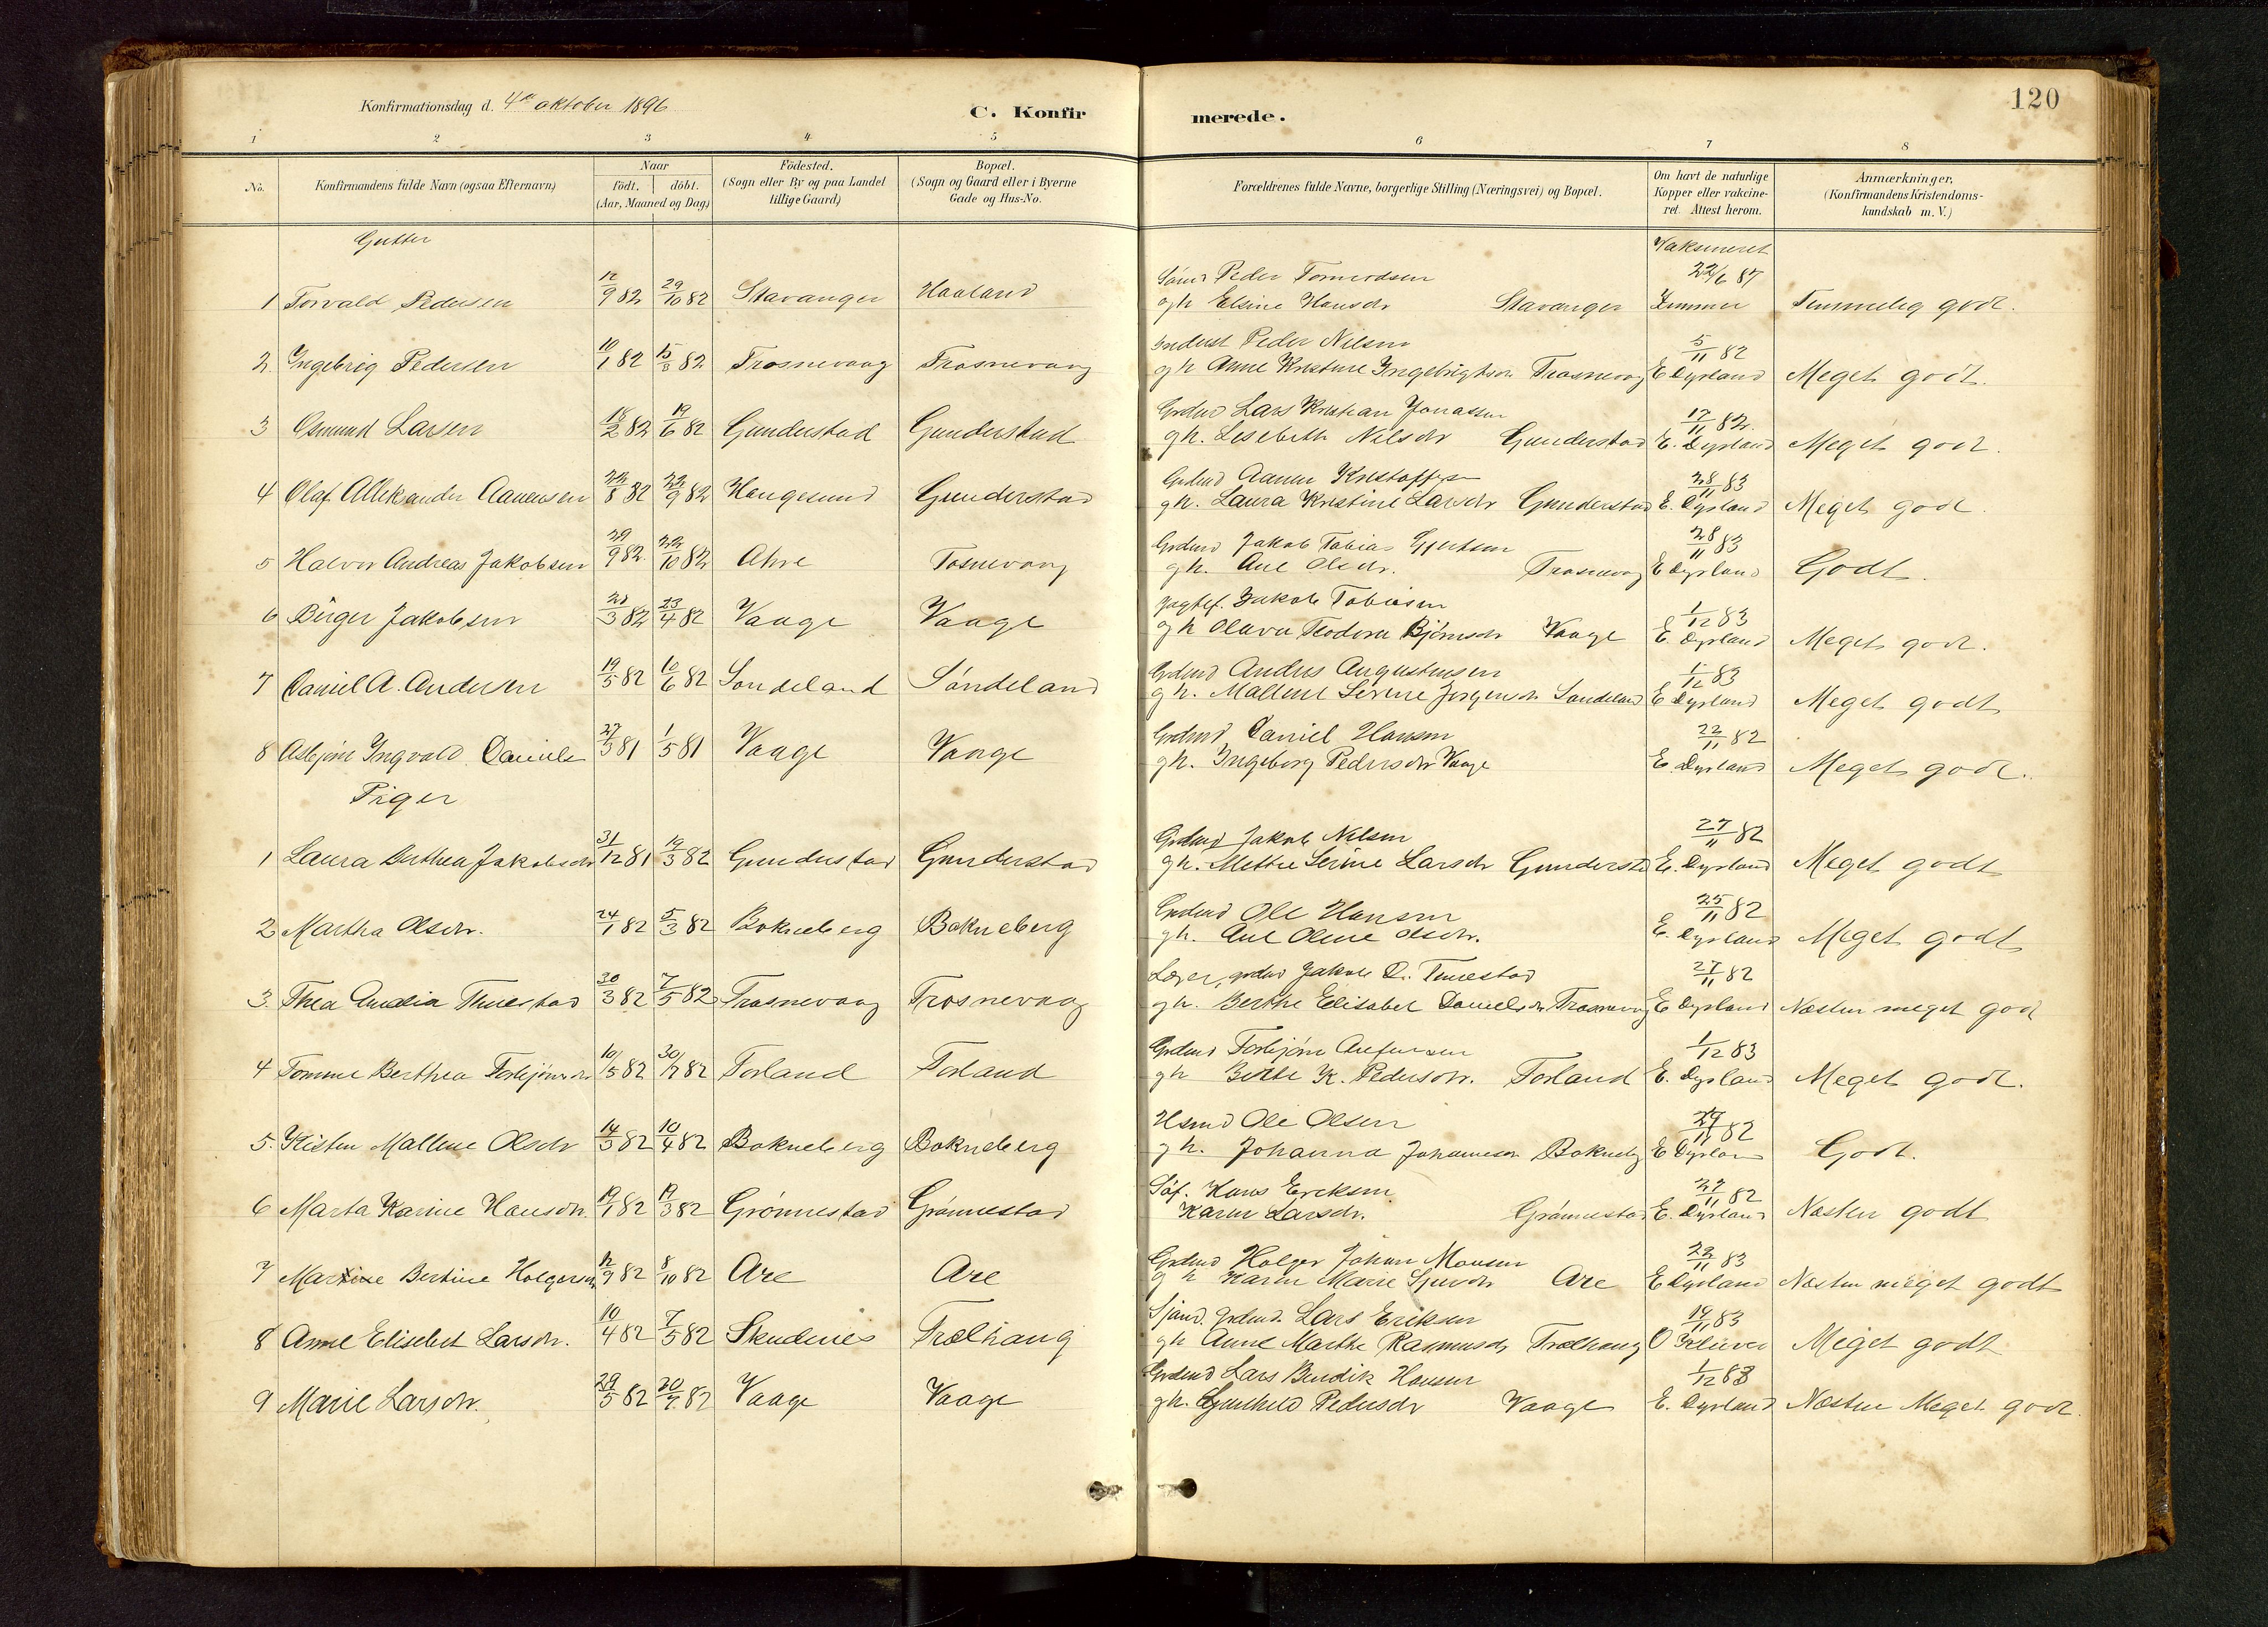 120
Konfirmationsdag d. 4de oktober 1896
C. Konfirmerede.
1 2 3 4 5 6 7 8
No.
Konfirmandens fulde Navn (ogsaa Efternavn)
Naar
födt. | döbt.
(Aar, Maaned og Dag)
Födested.
(Sogn eller By og paa Landet
tillige Gaard)
Bopæl.
(Sogn og Gaard eller i Byerne
Gade og Hus-No.
Forældrenes fulde Navne, borgerlige Stilling (Næringsvei) og Bopæl.
Om havt de naturlige
Kopper eller vakcine-
ret. Attest herom.
Anmærkninger,
(Konfirmandens Kristendoms-
kundskab m. V.)
Gutter
Vaksineret
Peder Tormodsen 22/6 87
1 Torvald Pedersen 12/9 82 29/10 82 Stavanger Haaland gh Elsine Hansdr Stavanger Zimmer Temmelig godt.
Inderst Peder Nilsen 5/11 82
2. Ingebrig Pedersen 10/1 82 15/3 82 Trosnevaag Trosnevaag gh Anne Kristine Trosnevaag E Dyrland Meget godt.
Grdmd Lars Kristian Jonassen 17/11 82.
3 Osmund Larsen 18/2 82 19/6 82 Gunderstad Gunderstad gh. Lisebeth Nilsdr Gunderstad E. Dyrland Meget godt.
Grdmd Aanen Kristoffersen 28/11 83
4 Olaf Alleksander Aanensen 22/8 82 22/9 82 Haugesund Gunderstad gh. Laura Kristine Larsdr Gunderstad E. Dyrland Meget godt.
Grdmd Jakob Tobias Gjertsen 28/11 83
5 Halvor Andreas Jakobsen 29/9 82 22/10 82 Ahre Tosnevaag gh. Ane Olsdr. Trosnevag E Dyrland Godt.
Jagtef. Jakob Tobiasen 1/12 83
6 Birger Jakobsen 21/3 82 23/4 82 Vaage Vaage gh Olava Teodora Bjørnsdr Vaage E. Dyrland Meget godt.
Grdmd Andres Augustinsen 1/12 83
7 Daniel A. Andersen 19/5 82 10/6 82 Sondeland Söndeland gh. Mallene Serine Jørgensdr Sondeland E Dyrland Meget godt
Grdmd Daniel Hansen 22/11 82
8 Asbjørn Ingvald Daniels 27/3 81 1/5 81 Vaage Vaage gh. Ingeborg Pedersdr Vaage E. Dyrland Meget godt.
Piger
Grdmd Jakob Nilsen 27/11 82
1 Laura Berthea Jakobsdr 31/12 81 19/3 82 Gunderstad Gunderstad gh. Mette Serine Larsdr Gundersta E. Dyrland Meget godt
Grdmd Ole Hansen 25/11 82
2 Martha Olsdr. 24/1 82 5/3 82 Bokneberg Bokneberg gh. Ane Oline Olsdr. E. Dyrland Meget godt
Lærer, grdmd Jakob D. Tuestad 27/11 82
3. Thea Amalia Thuestad 30/3 82 7/5 82 Trosnevaag Trosnevaag gh. Berthe Elisabet Danielsdr Trosnevag E Dyrland Næsten meget godt
Grdmd Torbjørn 1/12 83
4 Tomine Berthea Torbjørnsdr 10/5 82 30/7 82 Torland Torland gh K. Pedersdr. Torland E. Dyrland Meget godt.
Hsmd Ole Olsen 29/11 82
5. Kisten Mallene Olsdr 14/3 82 10/4 82 Bokneberg Bokneberg gh. Johanna Johannesdr Bokneb E Dyrland Godt.
Söf. Hans Ereksen 27/11 82
6 Marta Karine Hansdr. 19/1 82 19/3 82 Grönnestad Grönnestad Karen Larsdr. Grönnestad E. Dyrland Næsten godt
Grdmd Holger Johan Monsen 23/11 83
7 Martine Bertine Holgersdr 12/9 82 8/10 82 Are Are gh Karen Marie Are E Dyrland Næsten meget godt
Sjømd. Grdmd. Lars Ereksen 19/11 83
8 Anne Elisebet Larsdr. 10/4 82 7/5 82 Skudenes Trælhaug gh Anne Marthe Rasmusdr Trælhaug O Klüver Meget godt
Grdmd Lars Bendik Hansen 1/12 83
9 Marie Larsdr. 29/5 82 20/7 82 Vaage Vaage gh. Gunhild Pedersdr Vaage E. Dyrland Næsten Meget godt.